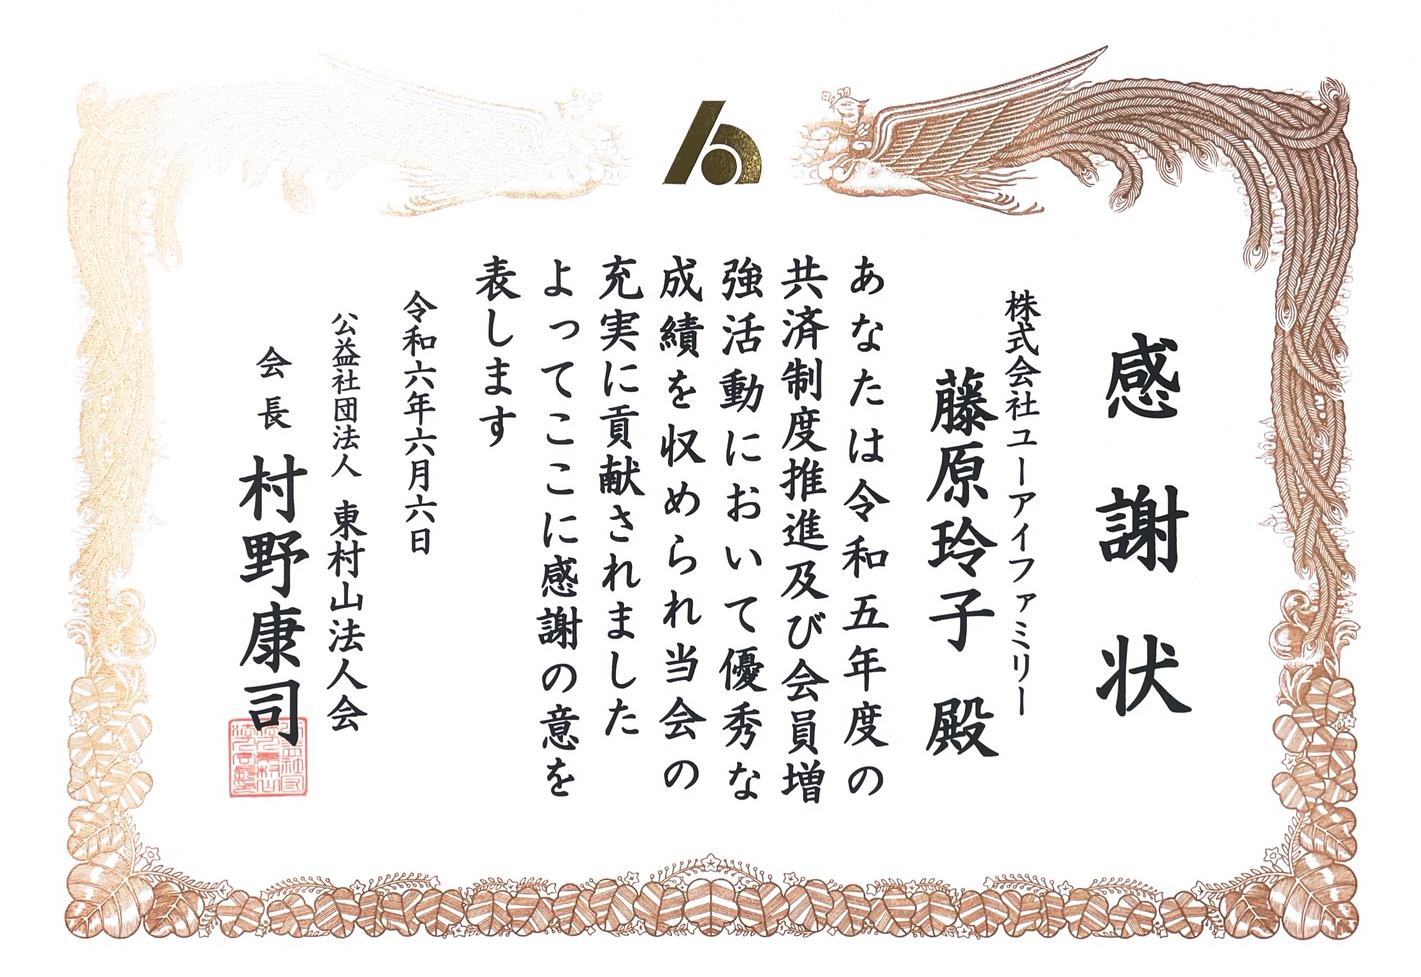 感謝状
株式会社ユーアイファミリー
藤原玲子 殿
あなたは令和五年度の
共済制度推進及び会員増
強活動において優秀な
成績を収められ当会の
充実に貢献されました
よってここに感謝の意を
表します
令和六年六月六日
公益社団法人 東村山法人会
会長 村野康司